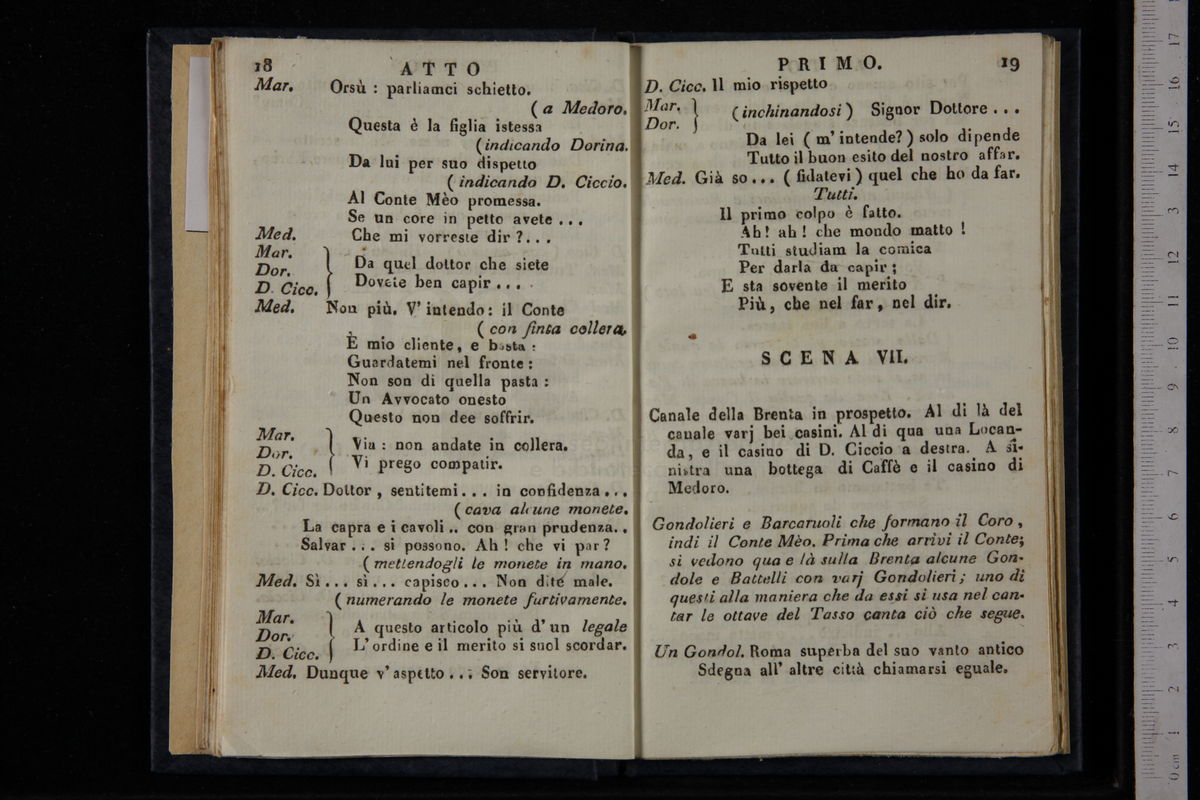 18
ATTO
Mar. Orsù : parliamci schietto.
( a Medoro.
Questa è la figlia istessa
(indicando Dorina.
Da lui per suo dispetto
( indicando D. Ciccio.
Al Conte Mèo promessa.
Se un core in petto avete ...
Med. Che mi vorreste dir ?...
Mar.
Dor.
D. Cicc.
Da quel dottor che siete
Dovete ben capir ...
Med. Non più. V' intendo: il Conte
( con finta collera.
È mio cliente, e basta :
Guardatemi nel fronte :
Non son di quella pasta :
Un Avvocato onesto
Questo non dee soffrir.
Mar.
Dor.
D. Cicc.
Via : non andate in collera.
Vi prego compatir.
D. Cicc. Dottor , sentitemi... in confidenza ...
( cava alcune monete.
La capra e i cavoli .. con gran prudenza..
Salvar ... si possono. Ah ! che vi par ?
( mettendogli le monete in mano.
Med. Sì ... sì ... capisco ... Non dite male.
( numerando le monete furtivamente.
Mar.
Dor.
D. Cicc.
A questo articolo più d' un legale
L' ordine e il merito si suol scordar.
Med. Dunque v' aspetto ... Son servitore.
PRIMO.
19
D. Cicc. Il mio rispetto
Mar.
Dor.
(inchinandosi) Signor Dottore ...
Da lei ( m' intende? ) solo dipende
Tutto il buon esito del nostro affar.
Med. Già so ... ( fidatevi ) quel che ho da far.
Tutti.
Il primo colpo è fatto.
Ah! ah ! che mondo matto !
Tutti studiam la comica
Per darla da capir ;
E sta sovente il merito
Più, che nel far, nel dir.
SCENA VII.
Canale della Brenta in prospetto. Al di là del
canale varj bei casini. Al di qua una Locan-
da, e il casino di D. Ciccio a destra. A si-
nistra una bottega di Caffè e il casino di
Medoro.
Gondolieri e Barcaruoli che formano il Coro ,
indi il Conte Mèo. Prima che arrivi il Conte;
si vedono qua e là sulla Brenta alcune Gon-
dole e Battelli con varj Gondolieri ; uno di
questi alla maniera che da essi si usa nel can-
tar le ottave del Tasso canta ciò che segue.
Un Gondol. Roma superba del suo vanto antico
Sdegna all' altre città chiamarsi eguale.
0 cm 1 2 3 4 5 6 7 8 9 10 11 12 13 14 15 16 17